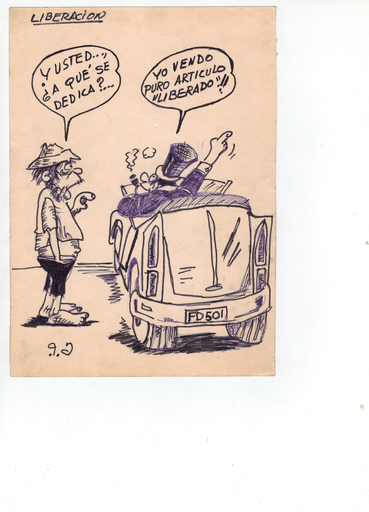 LIBERACION
Y USTED...,
¿A QUÉ SE
DEDICA?...
YO VENDO
PURO ARTICULO
"LIBERADO"!!
FD501